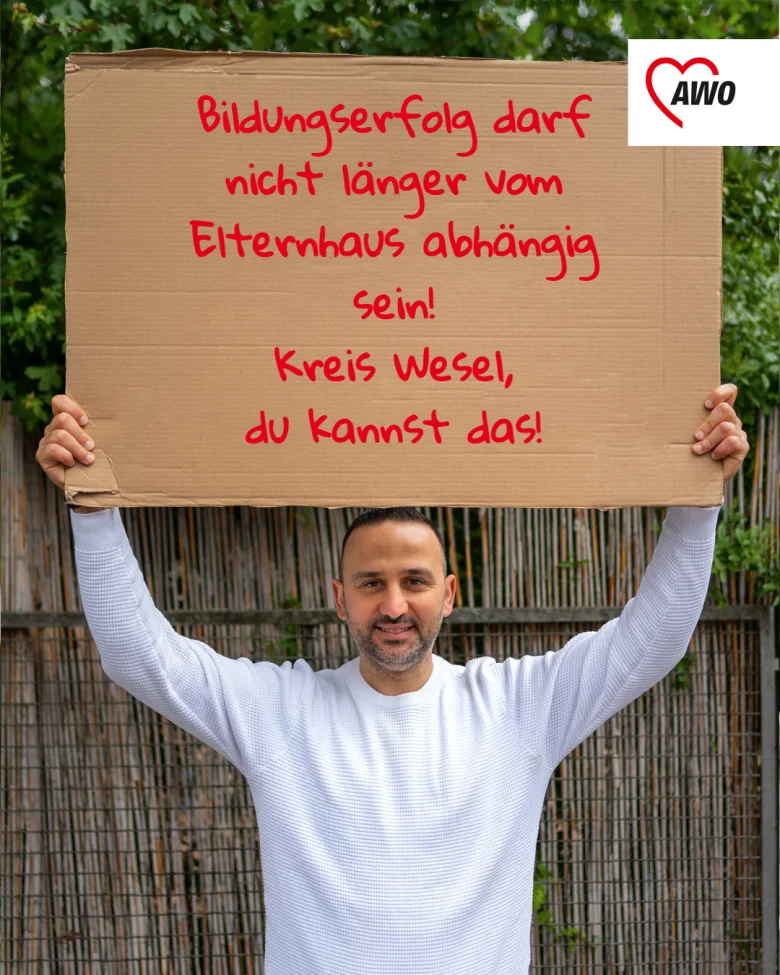 AWO
Bildungserfolg darf
nicht länger vom
Elternhaus abhängig
sein!
Kreis Wesel,
du kannst das!